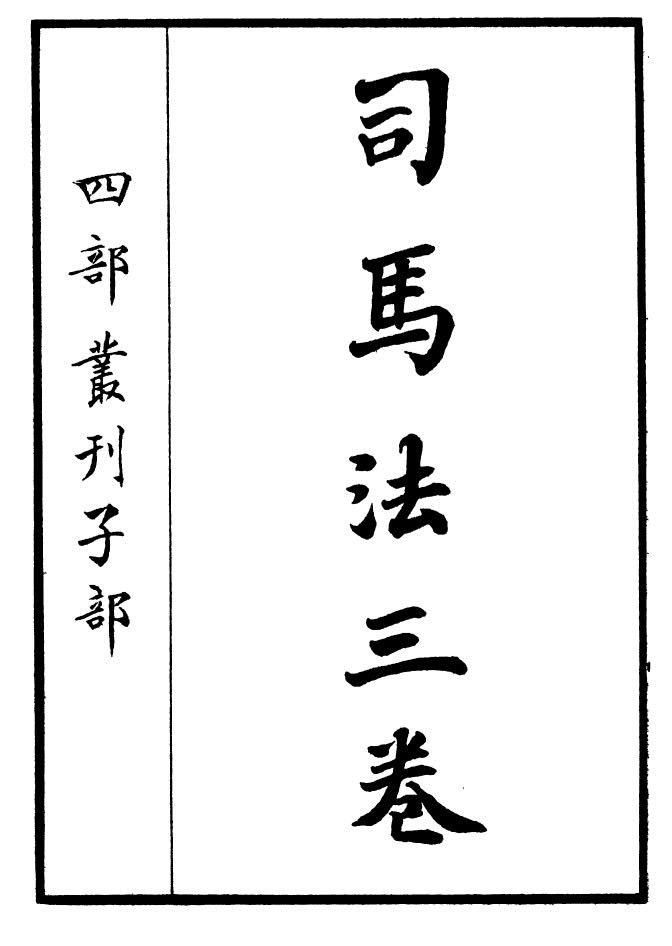 司馬法三卷
四部叢刊子部